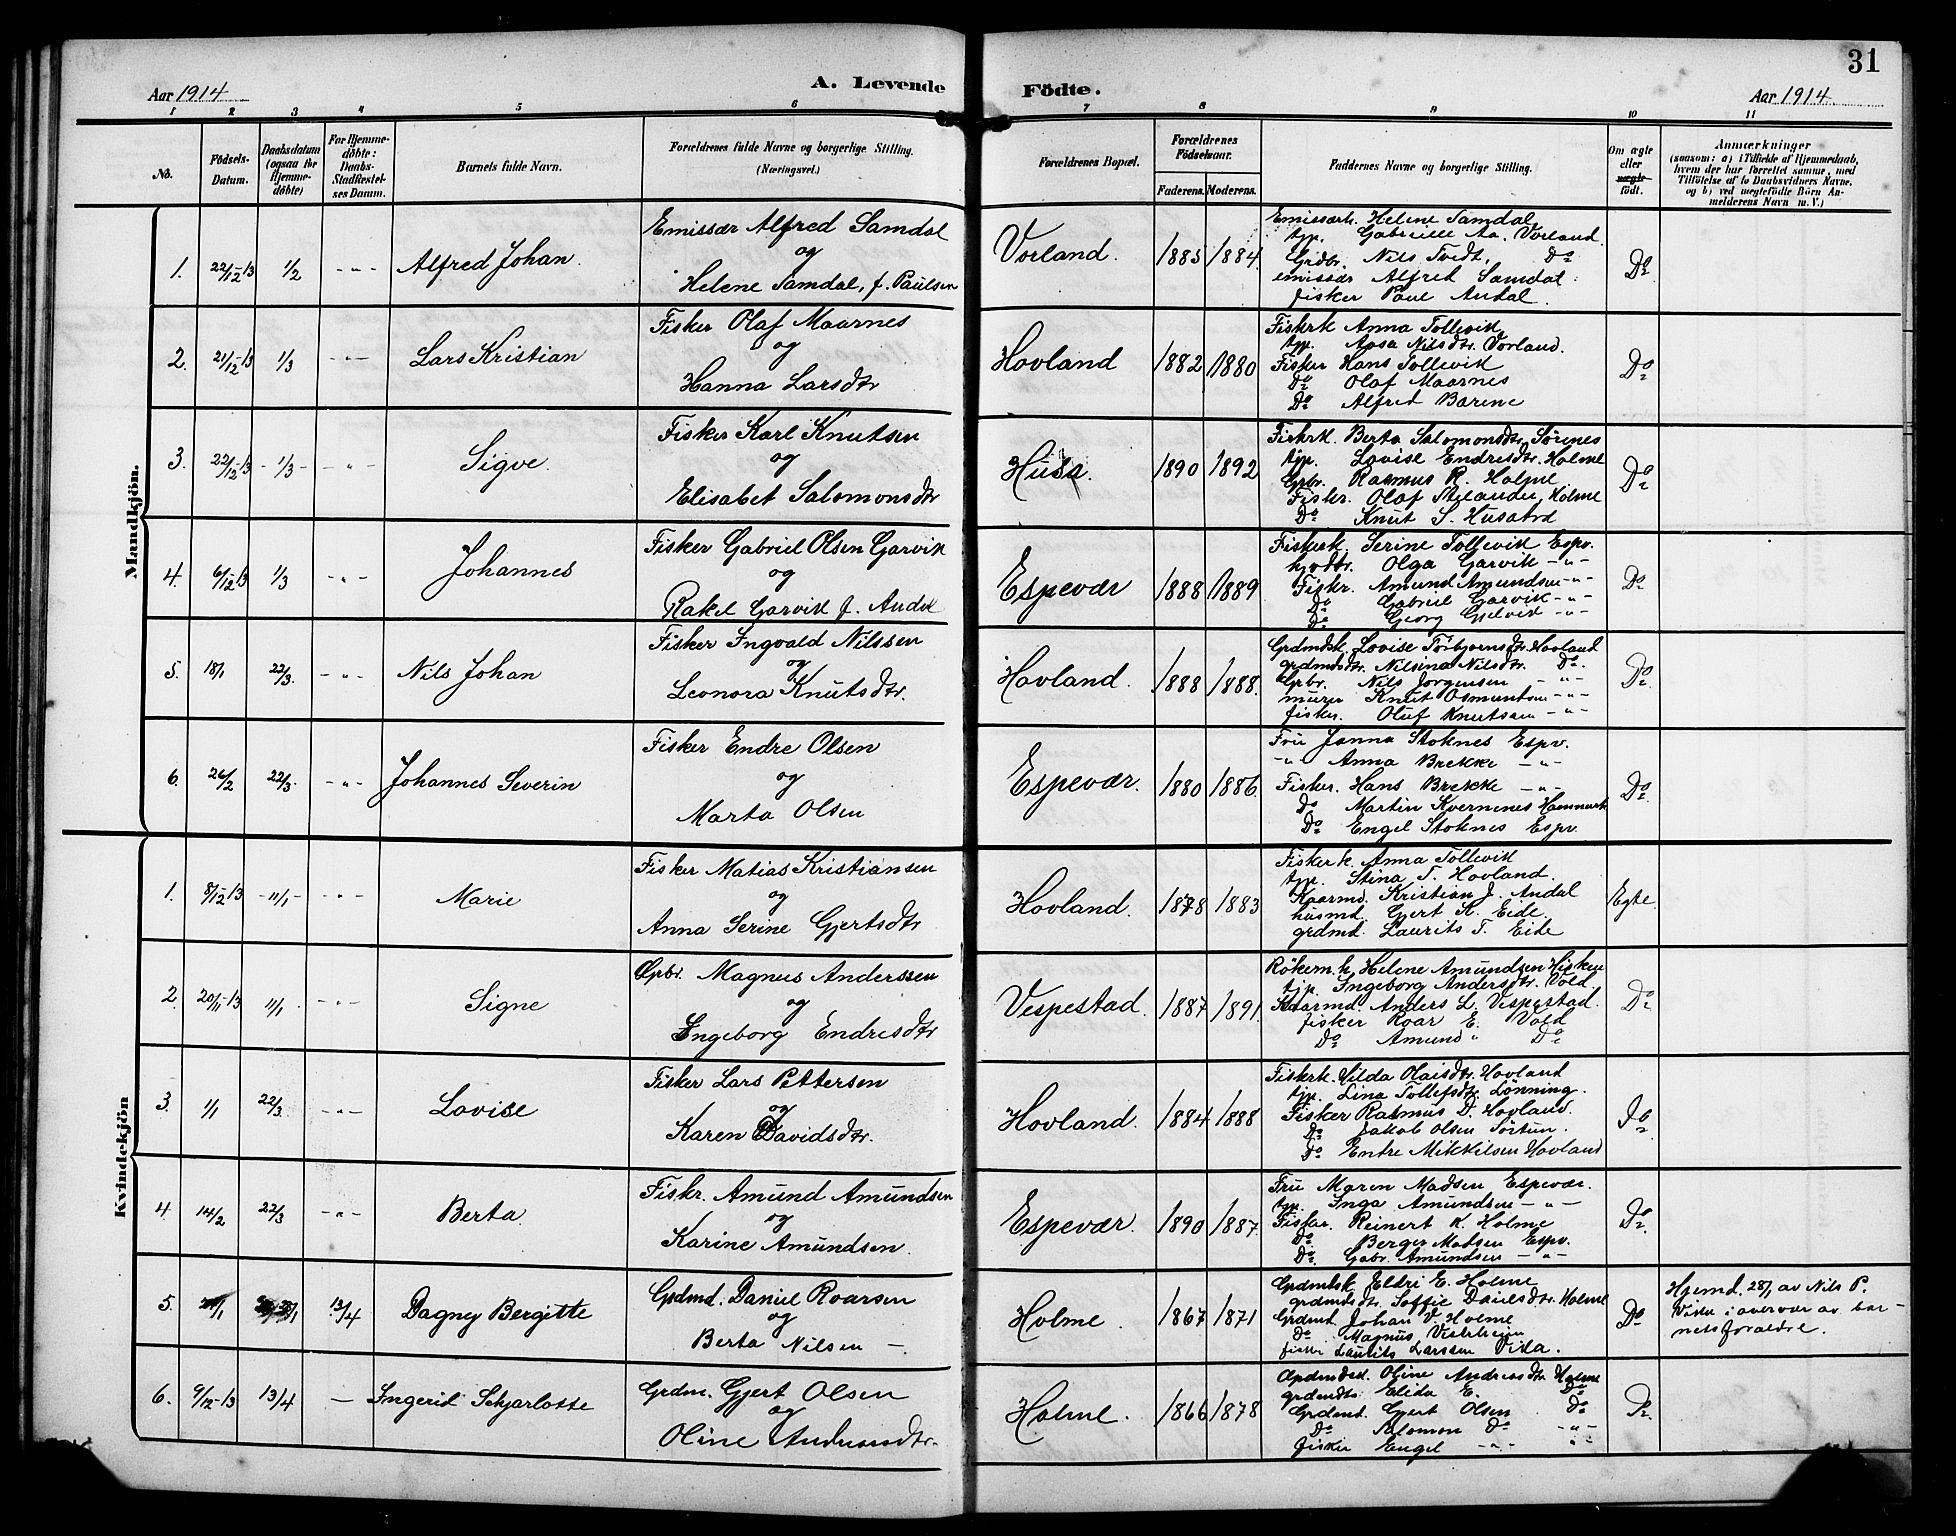 31
Aar 1914
A. Levende
Födte.
Aar 1914
1 2 3 4 5 6 7 8 9 10 11
No.
Födsels-
Datum.
Daabsdatum
(ogsaa for
Hjemme-
döbte)
For Hjemme-
döbte:
Daabs-
Stadfæstel-
ses Datum.
Barnets fulde Navn.
Forældrenes fulde Navne og borgerlige Stilling.
(Næringsvei.)
Forældrenes Bopæl.
Forældrenes
Födselsaar.
Faderens.
Moderens.
Faddernes Navne og borgerlige Stilling.
Om ægte
eller
uægte
födt.
Anmærkninger
(saasom: a) i Tilfælde af Hjemmedaab,
hvem der har forrettet samme, med
Tilföielse af to Daabsvidners Navne,
og b) ved uegtefödte Börn An-
melderens Navn m. V.)
Mandkjön.
1. 22/12-13 1/2 -"- Alfred Johan.
Emissær Alfred Samdal
og
Helene Samdal, f. Paulsen
Vorland. 1885 1884.
Emissærk. Helene Samdal
tjp. Gabrielle Aa. Vorland.
Grdbr. Nils Tvedt, Do
emissær Alfred Samdal.
fisker Paul Andal.
Do
2. 21/12-13 1/3 -"- Lars Kristian
Fisker Olaf Maarnes
og
Hanna Larsdtr
Hovland 1882 1880
Fiskrk Anna Tollevik
tjp. Aasa Nilsdtr. Vorland.
Fisker Hans Tollevik
Do Olaf Maarnes
Do Alfred Bærene
Do
3. 22/12-13 -1/3- -"- Sigve.
Fisker Karl Knutsen
og
Elisabet Salomonsdtr
Husa. 1890 1892
Fiskrk. Berta Salomonsdtr. Sørenes
tjp. Lovise Endresdtr. Holme
Gpbr. Rasmus R. Holme
Fiskr. Olaf Holme
Do Knut S.
Do
4. 6/12-13 1/3 -"- Johannes
Fisker Gabriel Olsen Garvik
og
Rakel Garvik f. Andal
Espevær 1888 1889
Fiskerk. Serine Tollevik Espv.
Olga Garvik -"-
Fiskr. Amund Amundsen -"-
Do Gabriel Garvik -"-
Do Georg -"-
Do
5. 18/1 22/3. -"- Nils Johan
Fisker Ingvald Nilssen
og
Leonora Knutsdtr.
Hovland. 1888 1888.
Grdmdsk. Lovise Torbjørnsdtr Hovland
grdmdsdtr. Nilsina Nilsdtr. Do.
Gpbr. Nils Jørgensen -"-
murer Knut Osmundsen -"-
fisker. Oluf Knutsen -"-
Do
6. 26/2 22/3. -"- Johannes Severin
Fisker Endre Olsen
og
Marta Olsen
Espevær. 1880 1886.
Fru Janna Stoknes Espv.
-"- Anna Brekke -"-
Fisker. Hans Brekke -"-
Do Martin Kvernenes
Do Engel Stoknes Espv.
Do
Kvindekjön
1. 8/12-13 -11/1- -"- Marie
Fisker Matias Kristiansen
og
Anna Serine Gjertsdtr
Hovland. 1878 1883
Fiskerk. Anna Tollevik
tjp. Stina T. Hovland.
Kaarmd. Kristian J. Andal
husmd. Gjert K. Eide.
grdmd. Laurits T. Eide
Egte.
2. 20/11-13 11/1. -"- Signe
Gpbr. Magnus Anderssen
og
Ingeborg Endresdtr
Vespestad. 1887 1891.
Røkerm.k. Helene Amundsen Hisken
tjp. Ingeborg Andersdtr. Vold.
Kaarmd. Anders L. Vespestad.
fisker Roar E. Vold
Do Amund " Do
Do
3. 1/1 22/3 -"- Lovise
Fisker Lars Pettersen
og
Karen Davidsdtr.
Hovland. 1884 1888
Fiskrk. Hilda Olaisdtr. Hovland
tjp. Lina Tollefsdtr. Lønning.
Fisker Rasmus D. Hovland.
Do Jakob Olsen Sørtun.
Do Endre Mikkelsen Hovland
Do
4. 14/2 22/3 -"- Berta
Fiskr. Amund Amundsen
og
Karine Amundsen.
Espevær 1890 1887.
Fru Maren Madsen Espevær.
tjp. Inga Amundsen -"-
Fisker. Reinert K. Holme
Do Berger Madsen Espv.
Do Gabr. Amundsen -"-
Do
5. 13/4 Dagney Bergitte
Grdmd. Daniel Roarsen
og
Berta Nilsen -
Holme. 1867 1871
Grdmdsk Eldri E. Holme
grdmdsdtr. Soffie Danielsdtr. Holme
Grdmd Johan V. Holme
Do Magnus
fisker Laurits Larssen Vika.
Do
Hjemd. 28/1 av Nils P.
Vika i overvær av bar-
netsforældre.
6. 9/12-13 13/4 - Ingerid Schjarlotte
Grdm. Gjert Olsen
og
Oline Andreasdtr.
Holme. 1866 1878
Oline Andreasdtr Holme
grdmdtr. Elida E. Do
Grdmd. Gjert Olsen Do
Do Salomon Do -"-
fisker Engel -"- -"-
Do